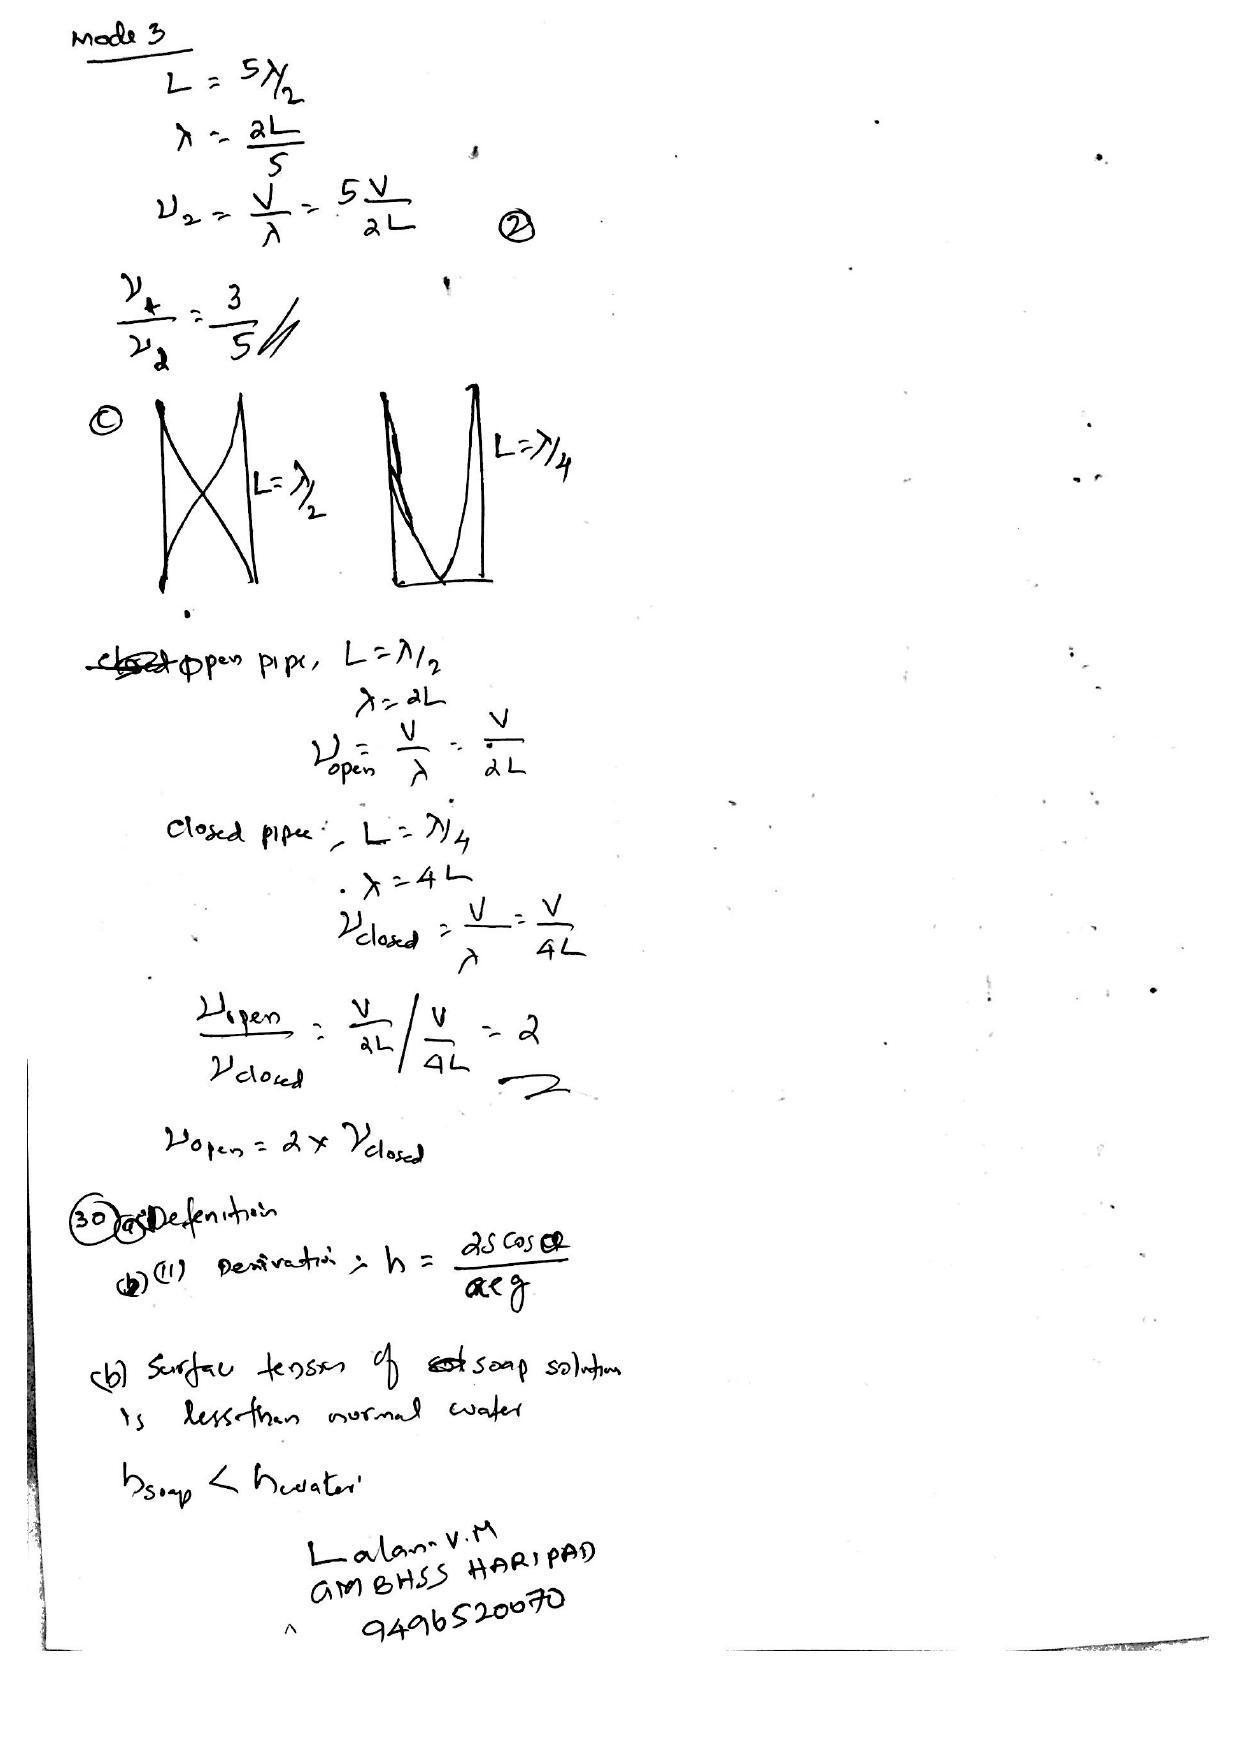 Mode 3
L = 5λ/2
λ = 2L/5
ν2 = V/λ = 5V/2L
②
ν1/ν2 = 3/5
ⓒ
L=λ/2
L=λ/4
open pipe, L=λ/2
λ=2L
νopen = V/λ = V/2L
closed pipee:, L=λ/4
λ=4L
νclosed = V/λ = V/4L
νopen/νclosed = V/2L / V/4L = 2
νopen = 2 × νclosed
30 (a) Defenition
(b) (ii) Derivation : h = 2s cos θ /
(b) Surface tension of soap solution
is less than normal water
hsoap < hwater
Lalan V.M
GM BHSS HARIPAD
9496520070